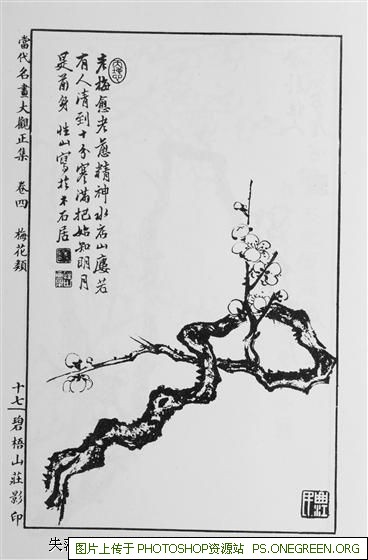 老梅愈老愈精神水店山廔若
有人清到十分寒满把始知明月
是前身 性山寫於木石居
當代名畫大觀正集 卷四 梅花類
十七 碧梧山莊影印
图片上传于 PHOTOSHOP资源站 PS.ONEGREEN.ORG